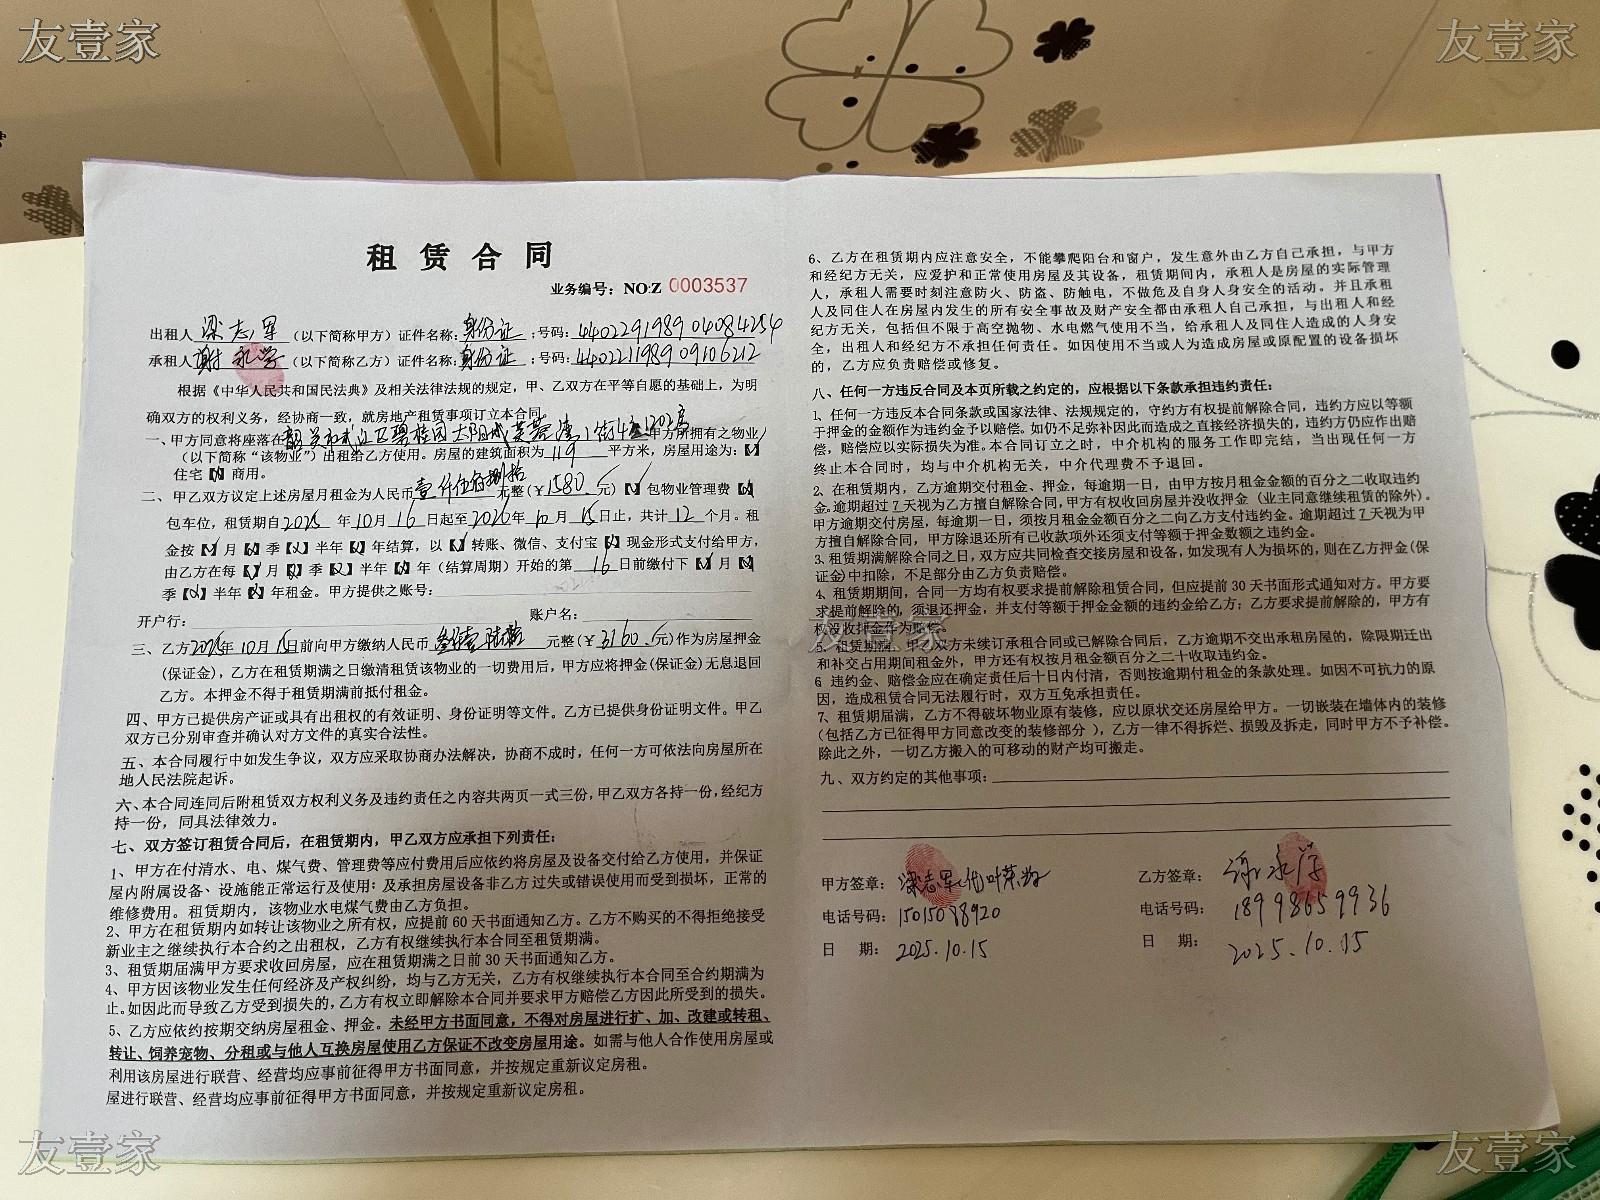 友壹家
友壹家
租赁合同
业务编号：NO:Z 0003537
出租人 梁志军 （以下简称甲方）证件名称：身份证 ；号码：440229198904084254
承租人 谢永学 （以下简称乙方）证件名称：身份证 ；号码：440221198909106212
根据《中华人民共和国民法典》及相关法律法规的规定，甲、乙双方在平等自愿的基础上，为明
确双方的权利义务，经协商一致，就房地产租赁事项订立本合同
一、甲方同意将座落在韶关市武江区碧桂园太阳城芙蓉湾1街4座1202房 甲方所拥有之物业
（以下简称“该物业”）出租给乙方使用。房屋的建筑面积为 119 平方米，房屋用途为：【√】
住宅【】商用。
二、甲乙双方议定上述房屋月租金为人民币 壹仟伍佰捌拾 元整（￥1580.元）【】包物业管理费【】
包车位，租赁期自2025年10月16日起至2026年10月15日止，共计12个月。租
金按【√】月【】季【】半年【】年结算，以【√】转账、微信、支付宝【】现金形式支付给甲方，
由乙方在每【√】月【】季【】半年【】年（结算周期）开始的第 16 日前缴付下【√】月【】
季【】半年【】年租金。甲方提供之账号：
开户行： 账户名：
三、乙方2025年10月15日前向甲方缴纳人民币 叁仟壹陆拾 元整（￥3160.元）作为房屋押金
（保证金），乙方在租赁期满之日缴清租赁该物业的一切费用后，甲方应将押金（保证金）无息退回
乙方。本押金不得于租赁期满前抵付租金。
四、甲方已提供房产证或具有出租权的有效证明、身份证明等文件。乙方已提供身份证明文件。甲乙
双方已分别审查并确认对方文件的真实合法性。
五、本合同履行中如发生争议，双方应采取协商办法解决，协商不成时，任何一方可依法向房屋所在
地人民法院起诉。
六、本合同连同后附租赁双方权利义务及违约责任之内容共两页一式三份，甲乙双方各持一份，经纪方
持一份，同具法律效力。
七、双方签订租赁合同后，在租赁期内，甲乙双方应承担下列责任：
1、甲方在付清水、电、煤气费、管理费等应付费用后应依约将房屋及设备交付给乙方使用，并保证
屋内附属设备、设施能正常运行及使用；及承担房屋设备非乙方过失或错误使用而受到损坏，正常的
维修费用。租赁期内，该物业水电煤气费由乙方负担。
2、甲方在租赁期内如转让该物业之所有权，应提前60天书面通知乙方。乙方不购买的不得拒绝接受
新业主之继续执行本合约之出租权，乙方有权继续执行本合同至租赁期满。
3、租赁期届满甲方要求收回房屋，应在租赁期满之日前30天书面通知乙方。
4、甲方因该物业发生任何经济及产权纠纷，均与乙方无关，乙方有权继续执行本合同至合约期满为
止。如因此而导致乙方受到损失的，乙方有权立即解除本合同并要求甲方赔偿乙方因此所受到的损失。
5、乙方应依约按期交纳房屋租金、押金。未经甲方书面同意，不得对房屋进行扩、加、改建或转租、
转让、饲养宠物、分租或与他人互换房屋使用乙方保证不改变房屋用途。如需与他人合作使用房屋或
利用该房屋进行联营、经营均应事前征得甲方书面同意，并按规定重新议定房租。
屋进行联营、经营均应事前征得甲方书面同意，并按规定重新议定房租。
6、乙方在租赁期内应注意安全，不能攀爬阳台和窗户，发生意外由乙方自己承担，与甲方
和经纪方无关，应爱护和正常使用房屋及其设备，租赁期间内，承租人是房屋的实际管理
人，承租人需要时刻注意防火、防盗、防触电，不做危及自身人身安全的活动。并且承租
人及同住人在房屋内发生的所有安全事故及财产安全都由承租人自己承担，与出租人和经
纪方无关，包括但不限于高空抛物、水电燃气使用不当，给承租人及同住人造成的人身安
全，出租人和经纪方不承担任何责任。如因使用不当或人为造成房屋或原配置的设备损坏
的，乙方应负责赔偿或修复。
八、任何一方违反合同及本页所载之约定的，应根据以下条款承担违约责任：
1、任何一方违反本合同条款或国家法律、法规规定的，守约方有权提前解除合同，违约方应以等额
于押金的金额作为违约金予以赔偿。如仍不足弥补因此而造成之直接经济损失的，违约方仍应作出赔
偿，赔偿应以实际损失为准。本合同订立之时，中介机构的服务工作即完结，当出现任何一方
终止本合同时，均与中介机构无关，中介代理费不予退回。
2、在租赁期内，乙方逾期交付租金、押金，每逾期一日，由甲方按月租金金额的百分之二收取违约
金。逾期超过7天视为乙方擅自解除合同，甲方有权收回房屋并没收押金（业主同意继续租赁的除外）。
甲方逾期交付房屋，每逾期一日，须按月租金金额百分之二向乙方支付违约金。逾期超过7天视为甲
方擅自解除合同，甲方除退还所有已收款项外还须支付等额于押金数额之违约金。
3、租赁期满解除合同之日，双方应共同检查交接房屋和设备，如发现有人为损坏的，则在乙方押金（保
证金）中扣除，不足部分由乙方负责赔偿。
4、租赁期期间，合同一方均有权要求提前解除租赁合同，但应提前30天书面形式通知对方。甲方要
求提前解除的，须退还押金，并支付等额于押金金额的违约金给乙方；乙方要求提前解除的，甲方有
权没收押金作为赔偿。
友壹家
5、租赁期满，甲乙双方未续订承租合同或已解除合同后，乙方逾期不交出承租房屋的，除限期迁出
和补交占用期间租金外，甲方还有权按月租金额百分之二十收取违约金。
6 违约金、赔偿金应在确定责任后十日内付清，否则按逾期付租金的条款处理。如因不可抗力的原
因，造成租赁合同无法履行时，双方互免承担责任。
7、租赁期届满，乙方不得破坏物业原有装修，应以原状交还房屋给甲方。一切嵌装在墙体内的装修
（包括乙方已征得甲方同意改变的装修部分），乙方一律不得拆烂、损毁及拆走，同时甲方不予补偿。
除此之外，一切乙方搬入的可移动的财产均可搬走。
九、双方约定的其他事项：
甲方签章：梁志军 代叶荣
电话号码：15015088920
日 期：2025.10.15
乙方签章：谢永学
电话号码：18998659936
日 期：2025.10.15
友壹家
友壹家